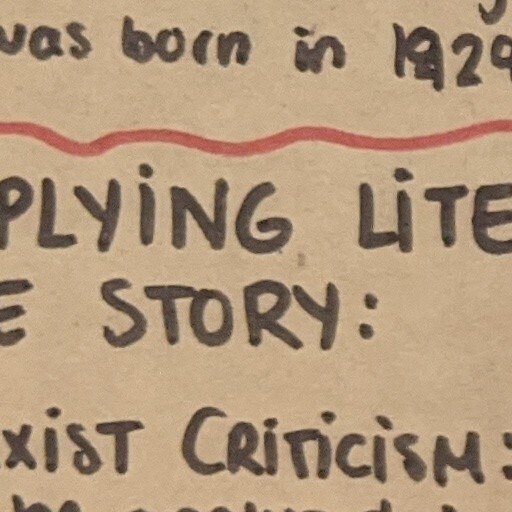 was born in 1929
PLYING LITE
E STORY:
XIST CRITICISM: